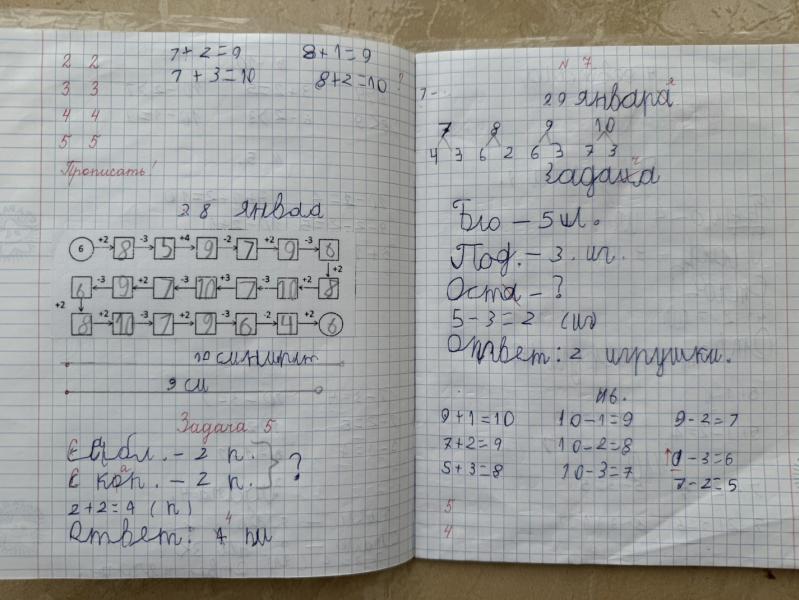 7+2=9 8+1=9
7+3=10 8+2=10 ?
2 2
3 3
4 4
5 5
Прописать!
28 янваа
6 +2 8 -3 5 +4 9 -2 7 +2 9 -3 6
+2
6 -3 9 +2 7 -3 10 +3 7 -3 10 +2 8
+2
8 +2 10 -3 7 +2 9 -3 6 -2 4 +2 6
9 см
Задача 5
– 2 п.
С коп. – 2 п. ?
а
2+2=4 (п)
4
Ответ: 4
N 7
я
29 января
7 8 9 10
4 3 6 2 6 3 7 3
ч
Задача
– 5 и.
Под. – 3 иг.
Оста – ?
5-3=2 (иг)
Ответ: 2 игрушки.
N6.
9+1=10 10-1=9 9-2=7
7+2=9 10-2=8 -3=6
5+3=8 10-3=7 7-2=5
5
4